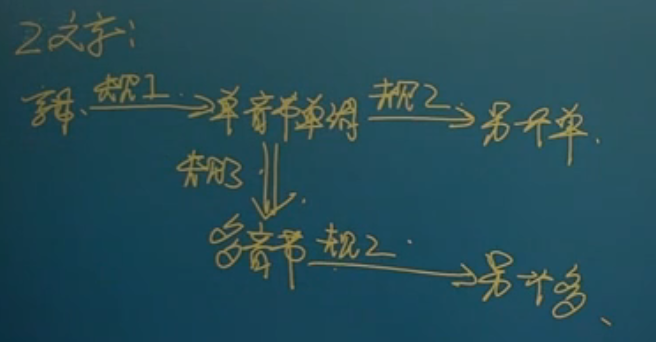 2文字:
字母、规1→单音节单词规2→另一个单、
规3⇓
多音节规2→另一个多、